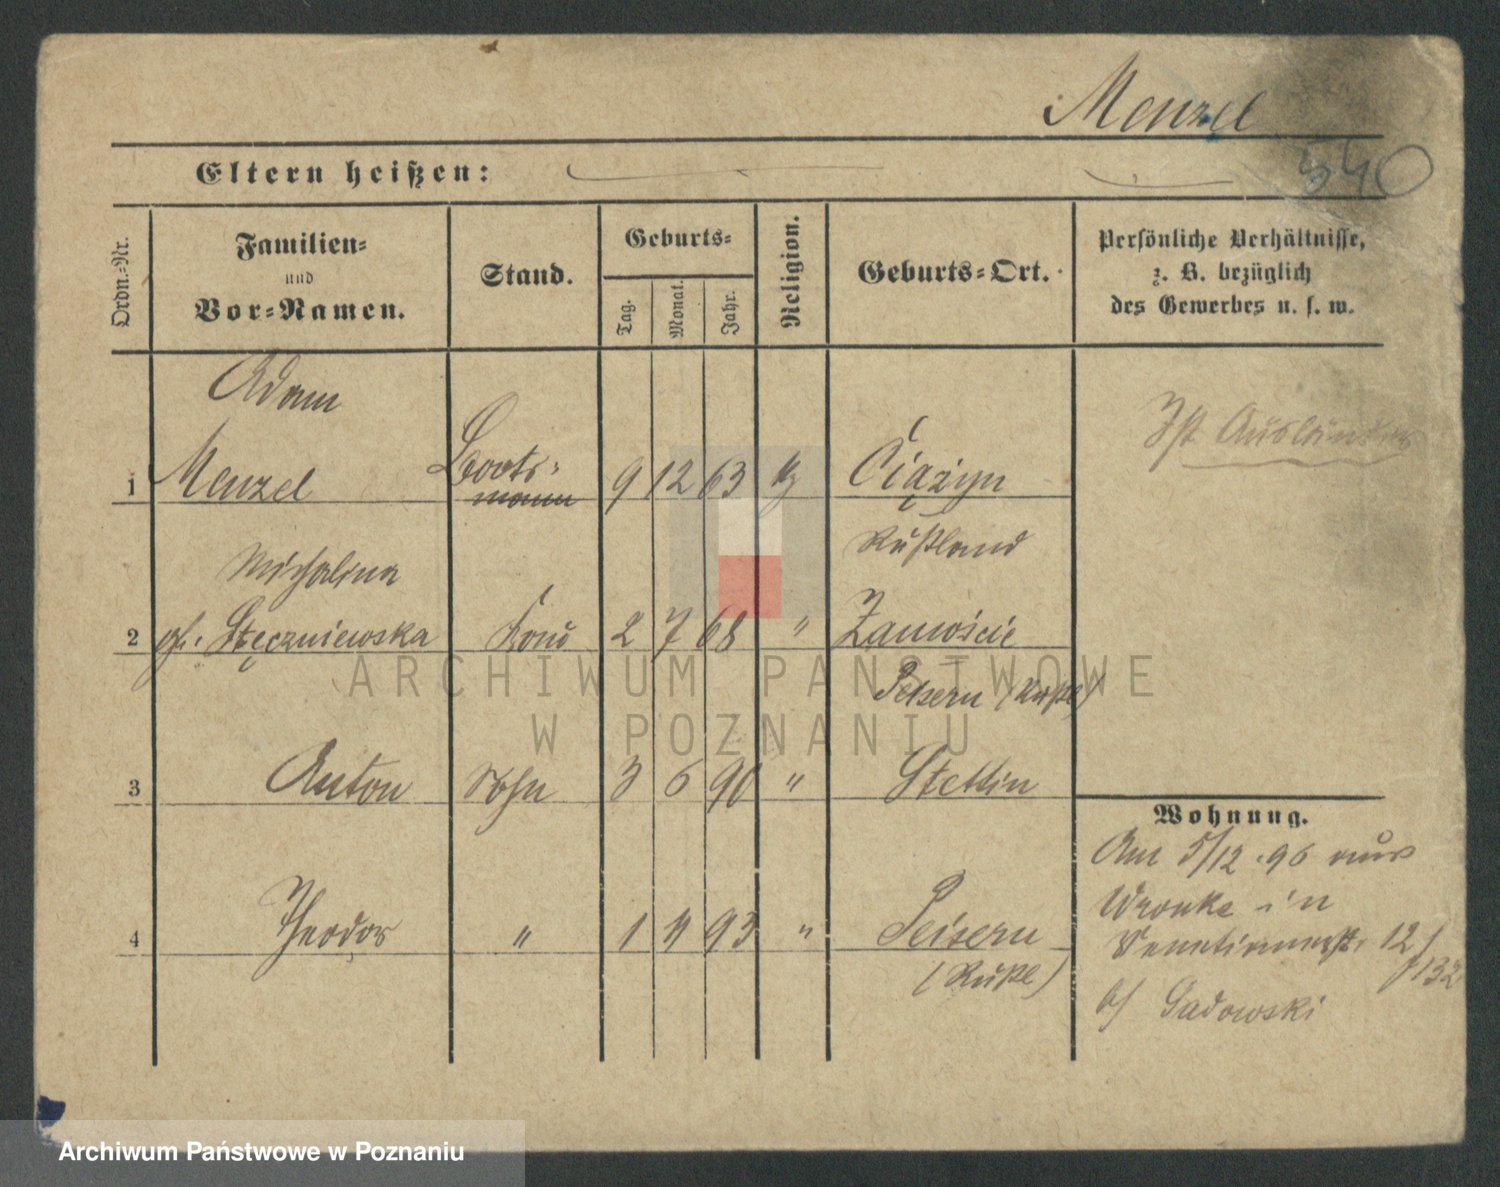 Menzel
540
Eltern heißen:
Ordn.-Nr.
Familien-
und
Vor-Namen.
Stand.
Geburts-
Tag.
Monat.
Jahr.
Religion.
Geburts-Ort.
Persönliche Verhältnisse,
z. B. bezüglich
des Gewerbes u. s. w.
Adam
1 Menzel Boots-
mann 9 12 63 Ciążyn
Rußland
Ist Ausländer
Michalina
2 Stęczniewska Frau 2 7 68 " Zamoście
Peisern (Rußl)
3 Anton Sohn 3 6 90 " Stettin
4 Theodor " 1 11 93 " Peisern
(Rußl)
Wohnung.
Am 5/12.96 aus
Wronke in
Venetianerstr. 12/
132
b/ Sadowski
ARCHIWUM PAŃSTWOWE
W POZNANIU
Archiwum Państwowe w Poznaniu